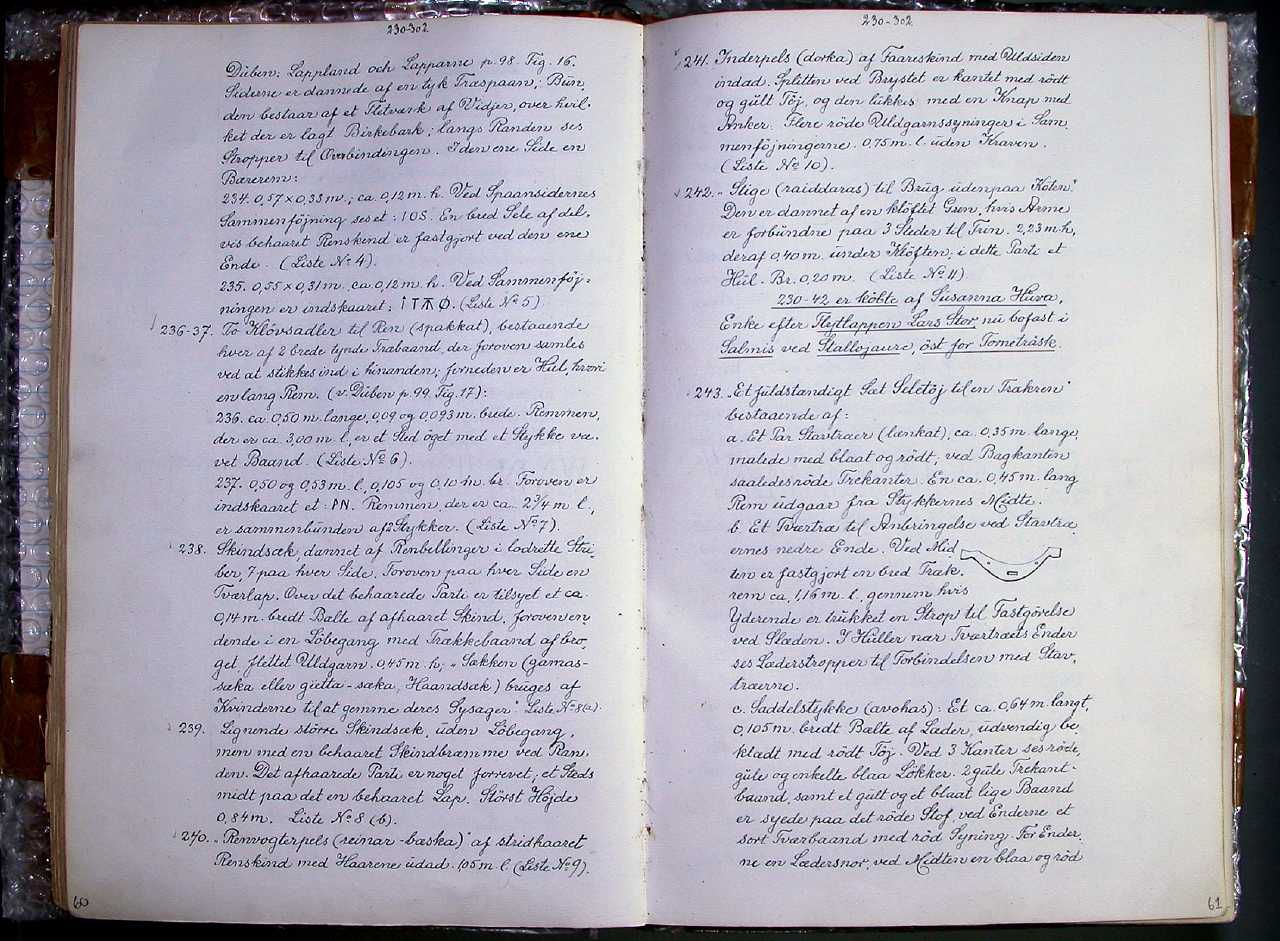 230-302
Düben: Lappland och Lapparne p. 98. Fig. 16.
Siderne er dannede af en tyk Træspaan; Bun.
den bestaar af et Fletværk af Vidjer, over hvil.
ket der er lagt Birkebark; langs Randen ses
Stropper til Overbindingen. I den ene Side en
Bærerem:
234. 0,57 x 0,33 m.; ca. 0,12 m. h. Ved Spaansidernes
Sammenføjning ses et: IOS. En bred Sele af del-
vis behaaret Renskind er fastgjort ved den ene
Ende. (Liste No 4).
235. 0,55 x 0,31 m. ca. 0,12 m. h. Ved Sammenföj-
ningen er indskaaret: (Liste No 5)
236-37. To Klövsadler til Ren (spakkat), bestaaende
hver af 2 brede tynde Træbaand, der foroven samles
ved at stikkes ind i hinanden; forneden er Hul, hvori
en lang Rem. (v. Düben p. 99. Fig. 17):
236. ca. 0,50 m. lange, 0,09 og 0,093 m. brede. Remmen,
der er ca. 3,00 m. l., er et Sted öget med et Stykke væ-
vet Baand. (Liste No 6).
237. 0,50 og 0,53 m. l., 0,105 og 0,10 m. br. Foroven er
indskaaret et: PN. Remmen, der er ca. 2 3/4 m. l.,
er sammenbunden af 2 Stykker. (Liste No 7).
238. Skindsæk, dannet af Renbellinger i lodrette Stri-
ber, 7 paa hver Side. Foroven paa hver Side en
Tværlap. Over det behaarede Parti er tilsyet et ca.
0,14 m. bredt Bælte af afhaaret Skind, foroven en-
dende i en Löbegang med Trækkebaand af bro-
get flettet Uldgarn. 0,45 m. h; „Sækken (gamas-
sæka eller gietta-sæka, Haandsæk) bruges af
Kvinderne til at gemme deres Sysager." Liste No 8(a).
239. Lignende större Skindsæk, uden Löbegang,
men med en behaaret Skindbræmme ved Ran-
den. Det afhaarede Parti er noget forrevet, et Steds
midt paa det en behaaret Lap. Störst Højde
0,84 m. Liste No 8 (b).
240. „Renvogterpels (reinar-baska)" af stridhaaret
Renskind med Haarene udad. 1,05 m. l. (Liste No 9).
60
230-302
241. Inderpels (dorka) af Faareskind med Uldsiden
indad. Splitten ved Brystet er kantet med rödt
og gult Töj, og den lukkes med en Knap med
Anker. Flere röde Uldgarnssyninger i Sam-
menföjningerne. 0,75 m. l. uden Kraven.
(Liste No 10).
242. „Stige (raiddaras) til Brug udenpaa Koten."
Den er dannet af en klöftet Gren, hvis Arme
er forbundne paa 3 Steder til Trin. 2,23 m. h.,
deraf 0,40 m. under Klöften, i dette Parti et
Hul. Br. 0,20 m. (Liste No 11)
230-42 er köbte af Susanna Huva,
Enke efter Flytlappen Lars Stor, nu bofast i
Salmis ved Stallojaure, öst for Torneträsk.
243. „Et fuldstændigt Sæt Seletöj til en Trækren"
bestaaende af:
a. Et Par Stavtræer (lænkat), ca. 0,35 m. lange,
malede med blaat og rödt, ved Bagkanten
saaledes röde Trekanter. En ca. 0,45 m. lang
Rem udgaar fra Stykkernes Midte.
b. Et Tværtræ til Anbringelse ved Stavtræ
ernes nedre Ende. Ved Mid
ten er fastgjort en bred Træk-
rem ca. 1,16 m. l. gennem hvis
Yderende er trukket en Strop til Fastgörelse
ved Slæden. I Huller nær Tværtræets Ender
ses Læderstropper til Forbindelsen med Stav-
træerne.
c. Saddelstykke (avohas): Et ca. 0,64 m. langt,
0,105 m. bredt Bælte af Læder, udvendig be-
klædt med rödt Töj. Ved 3 Kanter ses röde,
gule og enkelte blaa Lökker. 2 gule Trekant-
baand, samt et gult og et blaat lige Baand
er syede paa det röde Stof, ved Enderne et
sort Tværbaand med röd Syning. For Ender-
ne en Lædersnor, ved Midten en blaa og röd
61